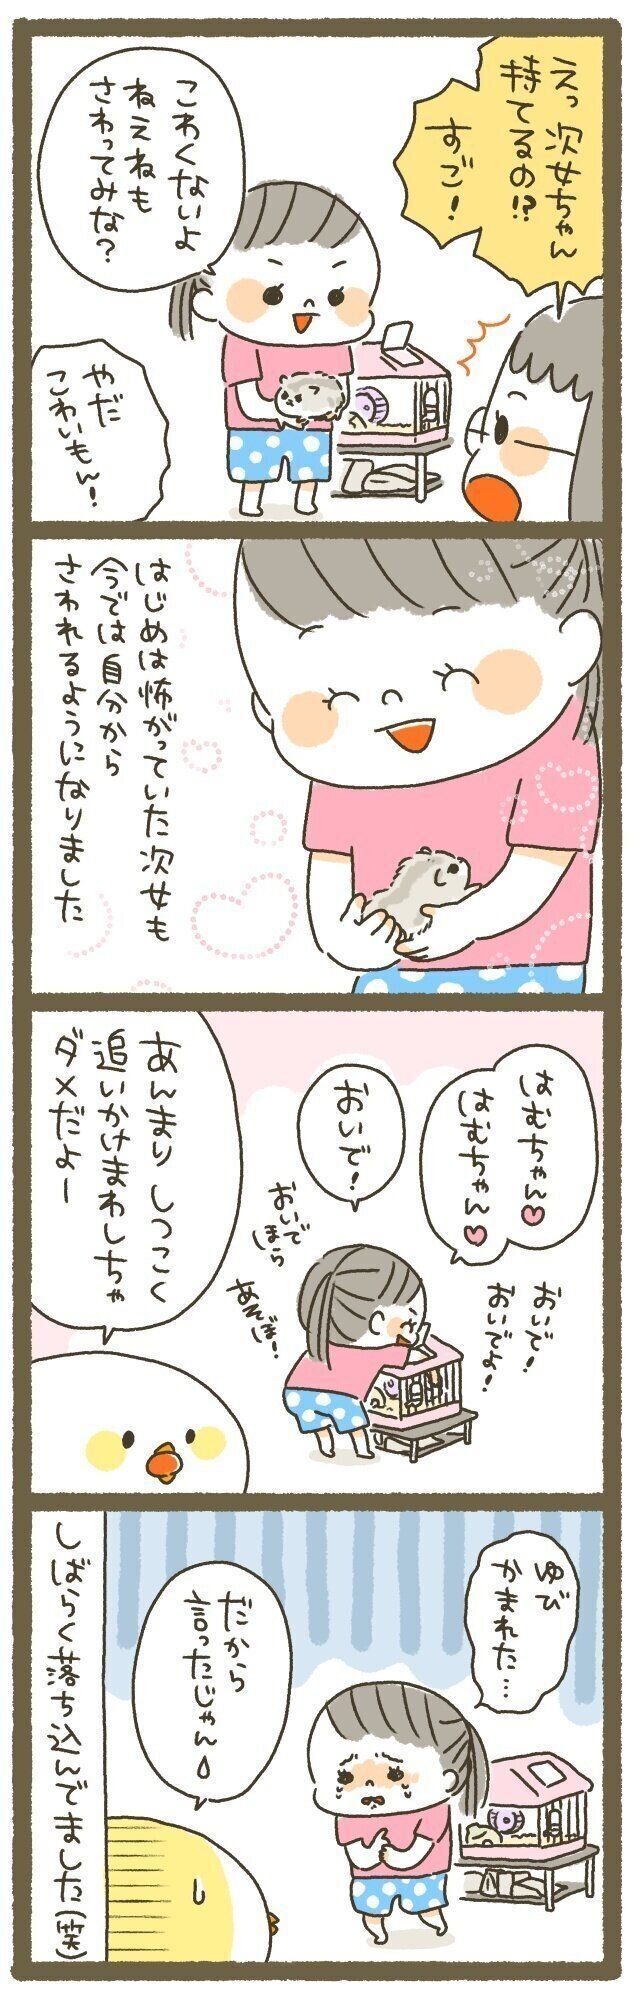 えっ 次女ちゃん
持てるの!?
すご!
こわくないよ
ねえねも
さわってみな?
やだ
こわいもん!
はじめは怖がっていた次女も
今では自分から
さわれるようになりました
はむちゃん♥
はむちゃん♥
おいで!
おいでよ!
おいで!
おいで
ほら
あそぼー!
あんまり しつこく
追いかけまわしちゃ
ダメだよー
ゆび
かまれた…
だから
言ったじゃん
しばらく落ち込んでました(笑)